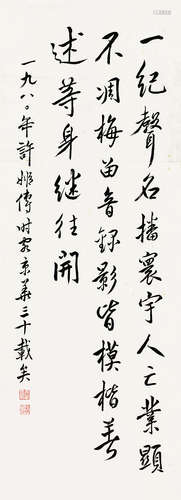 一紀聲名播寰宇人亡業顯
不凋梅留音錄影皆模楷善
述等身繼往開
一九八〇年許姬傳時客京華三十載矣